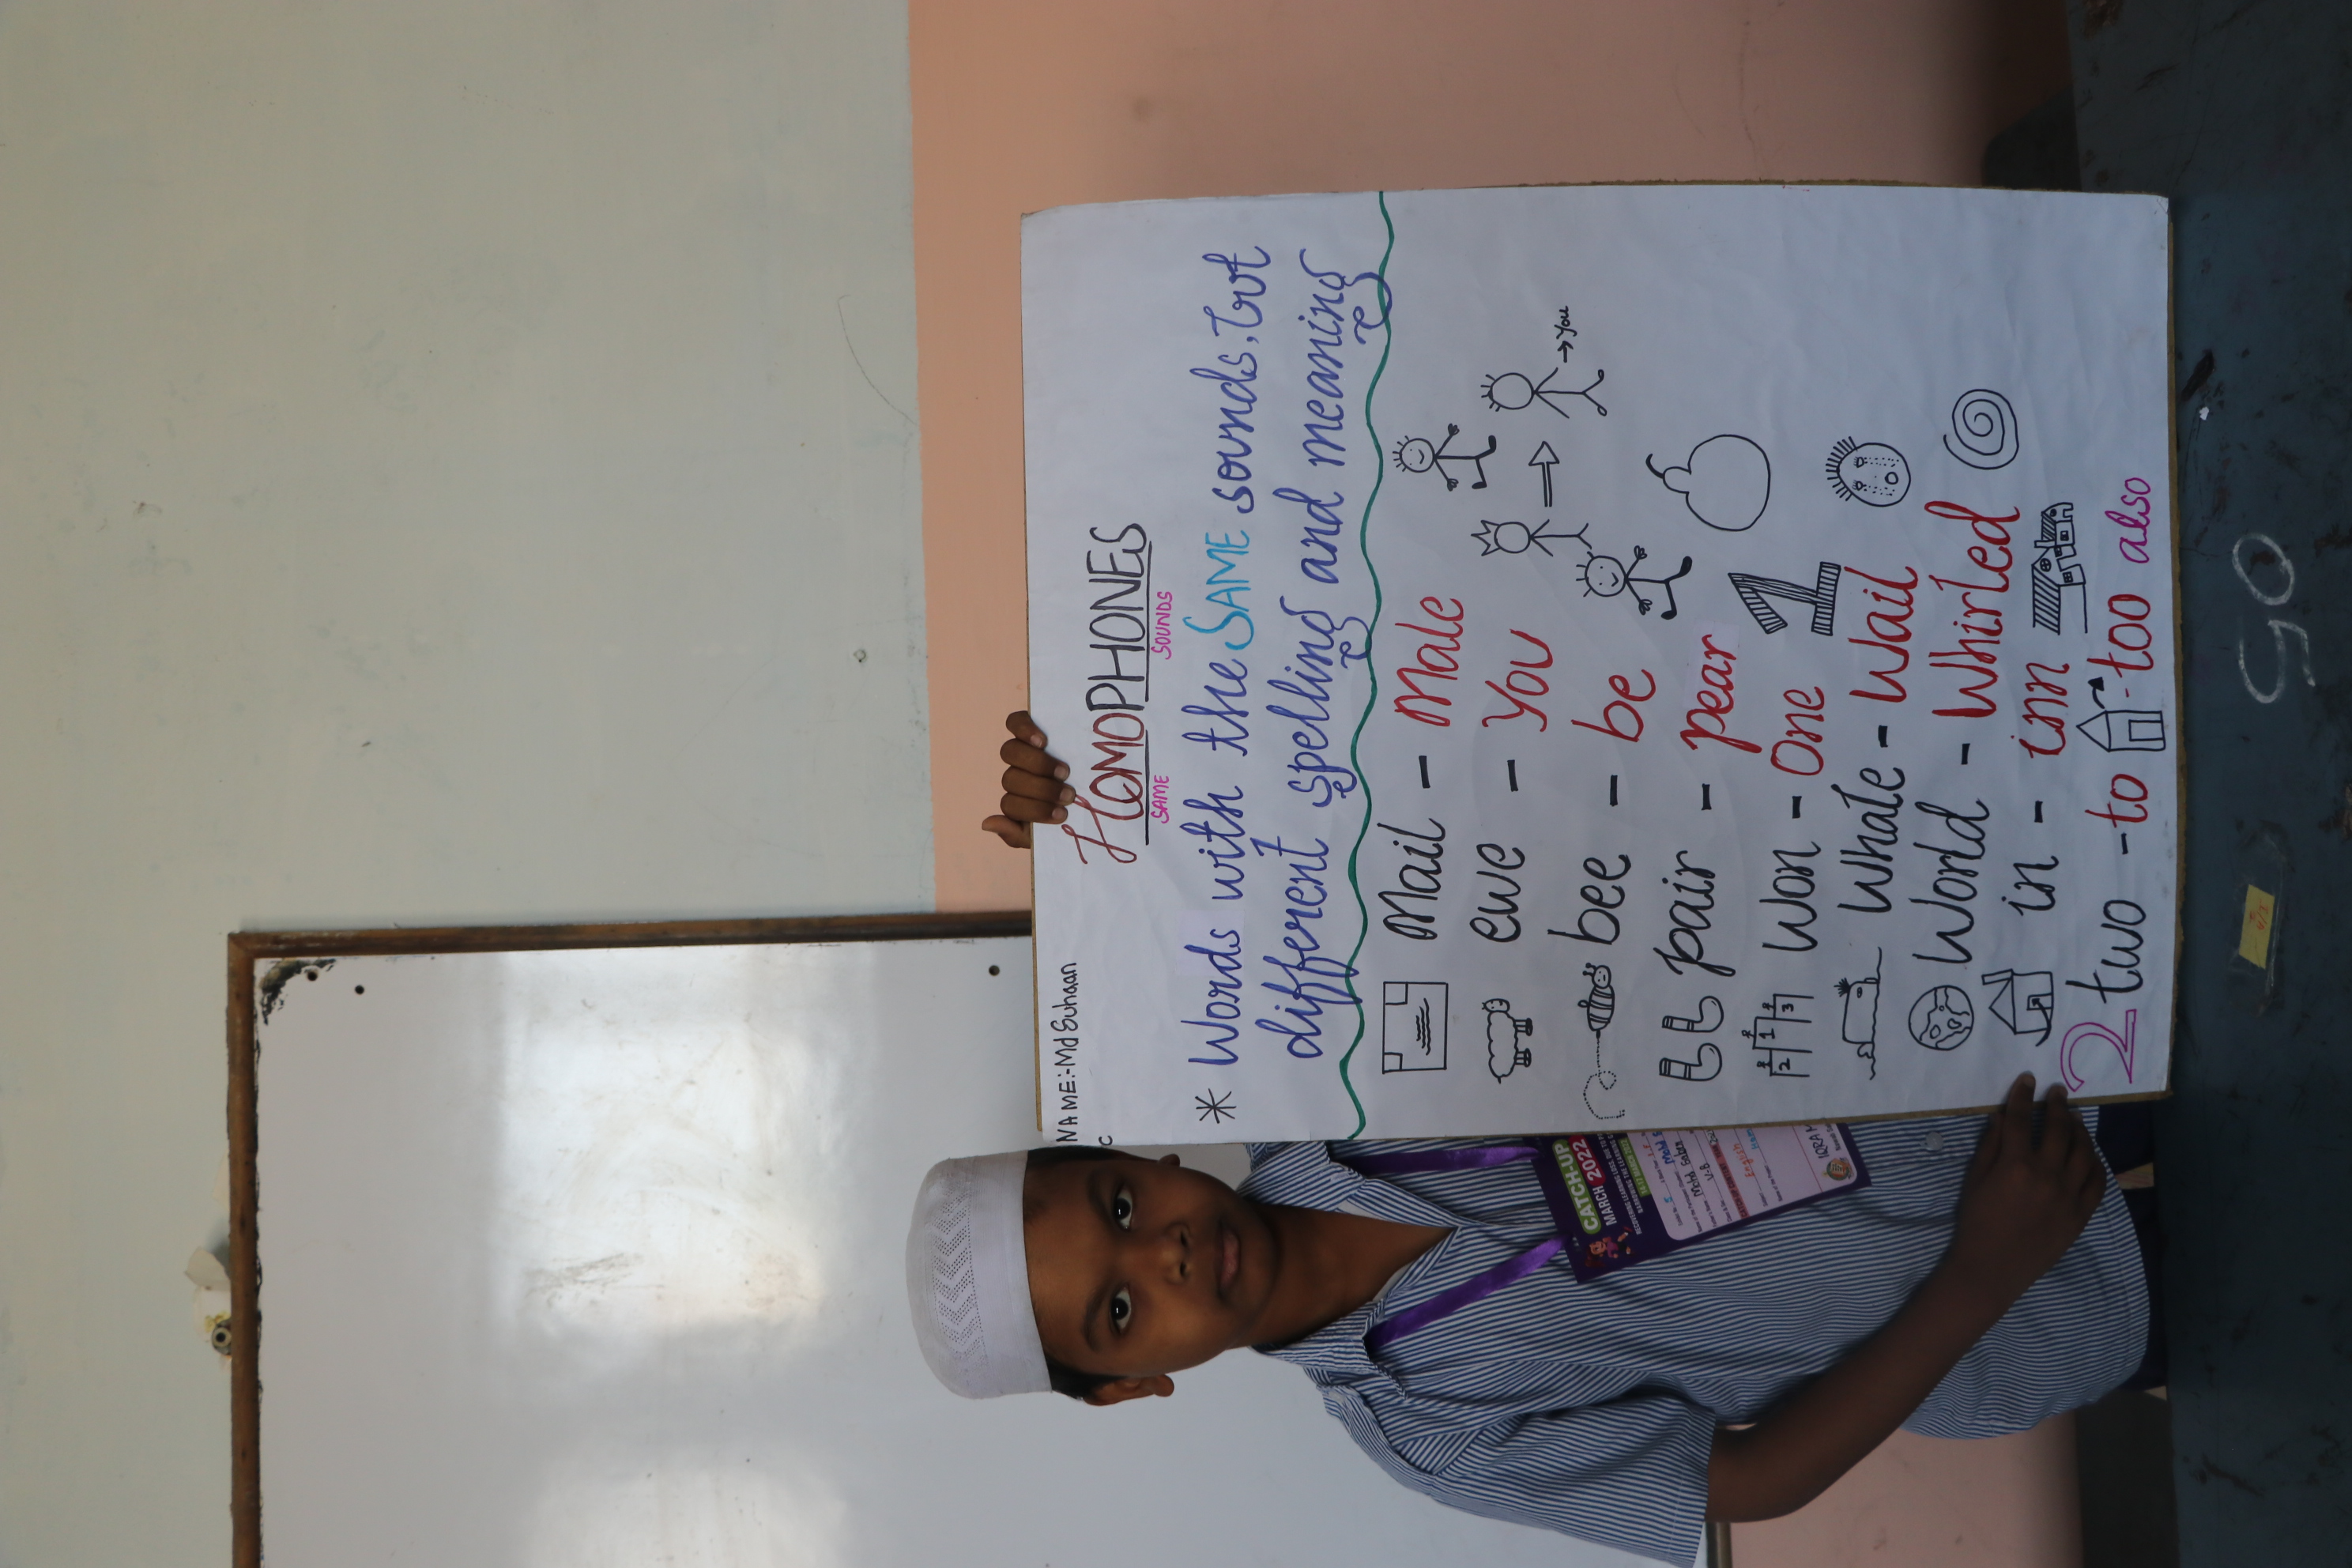 NAME:-Md Suhaan
HOMOPHONES
SAME SOUNDS
* Words with the SAME sounds, but
different spelling and meaning
Mail - Male
ewe - You
→ You
bee - be
pair - pear
Won - One
2 1 3
Whale - Wail
World - Whirled
in - inn
2 two - to - too also
CATCH-UP
MARCH 2022
Mohd Saber
V-B
English
IQRA
50